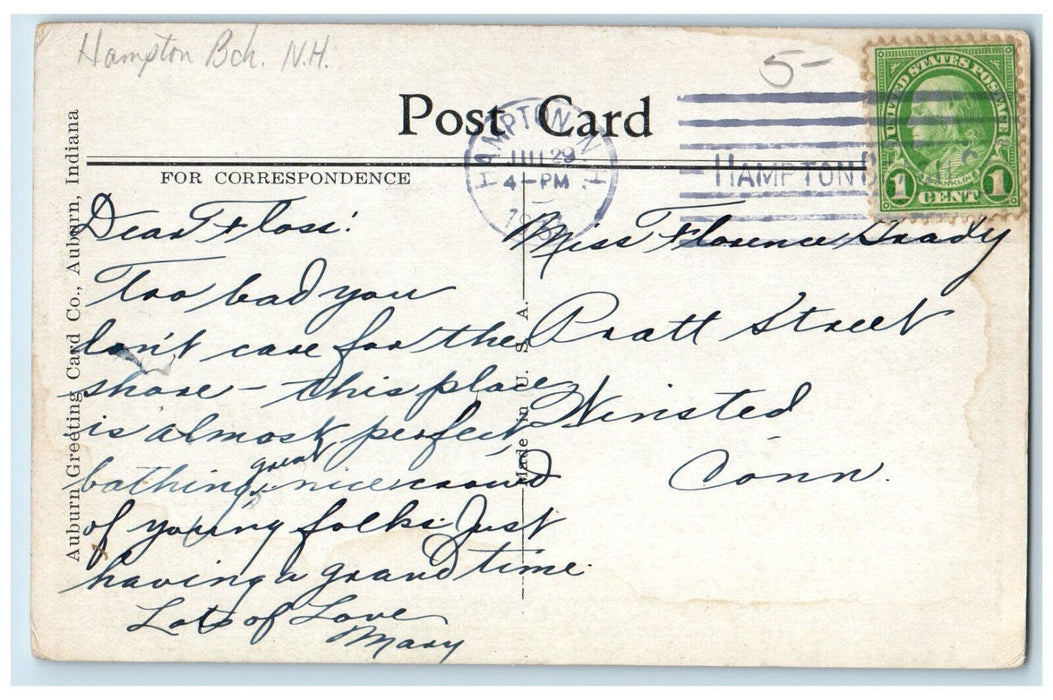 Hampton Bch. N.H.
5-
Post Card
HAMPTON N.H.
JUL 29
4-PM
HAMPTON
UNITED STATES POSTAGE
FRANKLIN
1 CENT 1
FOR CORRESPONDENCE
Auburn Greeting Card Co., Auburn, Indiana
Made in U. S. A.
Dear Floss:
Too bad you
don't care for the
shore - this place
is almost perfect
bathing great nice crowd
of young folks. Just
having a grand time.
Lots of Love
Mary
Miss Florence Grady
Pratt Street
Winsted
Conn.